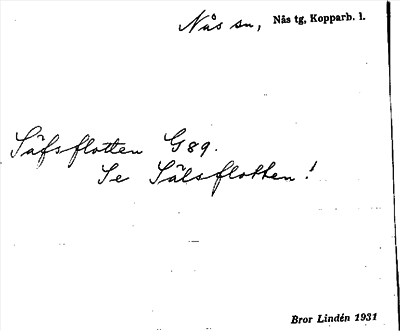 Nås sn, Nås tg, Kopparb. l.
Säfsflotten G89.
Se Sälsflotten!
Bror Lindén 1931